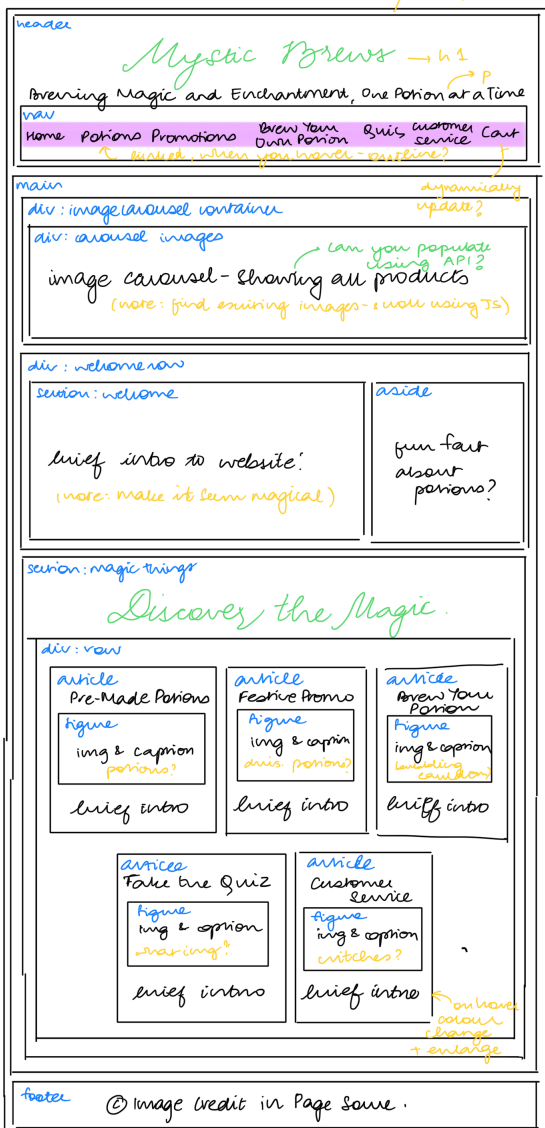 header
Mystic Brews → h1
p
Brewing Magic and Enchantment, One Potion at a Time
nav
Home Potions Promotions Brew Your Own Potion Quiz Customer Service Cart
linked, when you hover - outline?
dynamically update?
main
div: image carousel container
div: carousel images
can you populate using API?
image carousel - showing all products
(note: find exciting images - & work using JS)
div: welcome row
section: welcome
brief intro to website!
(note: make it seem magical)
aside
fun fact
about
potions?
section: magic things
Discover the Magic.
div: row
article
Pre-Made Potions
figure
img & caption
potions?
brief intro
article
Festive Promo
figure
img & caption
potions?
brief intro
article
Brew Your
Potion
figure
img & caption
cauldron?
brief intro
article
Take the Quiz
figure
img & caption
what img?
brief intro
article
Customer
Service
figure
img & caption
witches?
brief intro
on hover
colour
change
+ enlarge
footer
© Image Credit in Page Source.